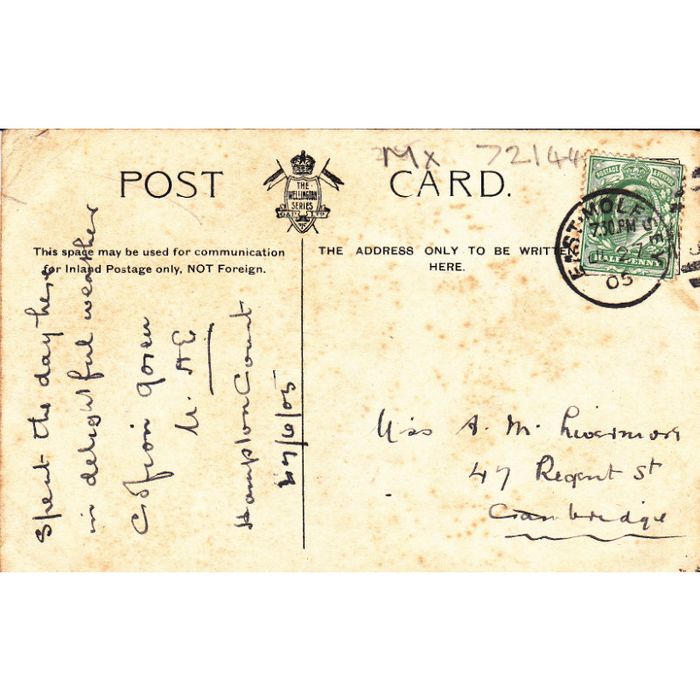 Mx 72144
POST CARD.
THE
WELLINGTON
SERIES
This space may be used for communication
for Inland Postage only, NOT Foreign.
THE ADDRESS ONLY TO BE WRITTEN
HERE.
POSTAGE & REVENUE
HALFPENNY
EAST MOLESEY
7.30 PM
27
05
Spent the day here
in delightful weather
Hampton Court
27/6/05
Miss A. M. Livermore
47 Regent St
Cambridge